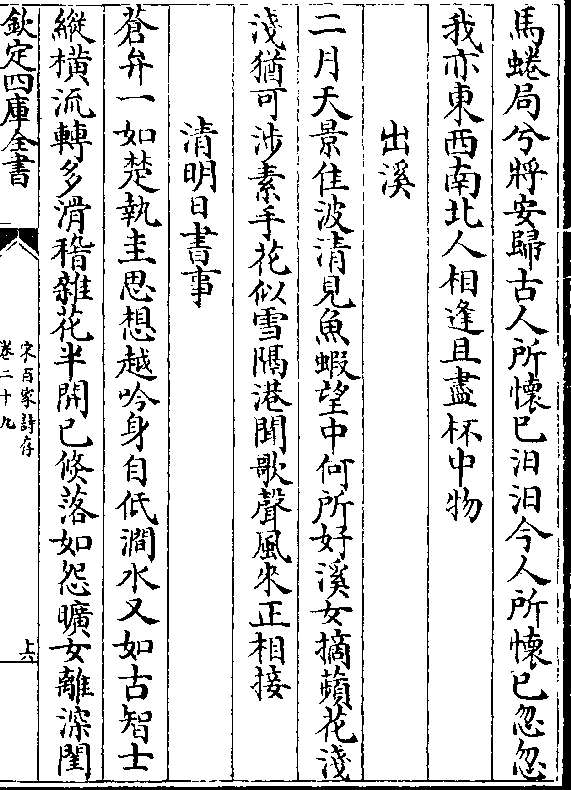 馬蜷局兮將安歸古人所懷已汨汨今人所懷已忽忽
我亦東西南北人相逢且盡杯中物
出溪
二月天景佳波清見魚蝦望中何所好溪女摘蘋花淺
淺猶可涉素手花似雪隔港聞歌聲風來正相接
清明日書事
蒼弁一如楚執圭思想越吟身自低澗水又如古智士
縱橫流轉多滑稽雜花半開已倐落如怨曠女離深閨
欽定四庫全書
宋百家詩存
卷二十九
十六